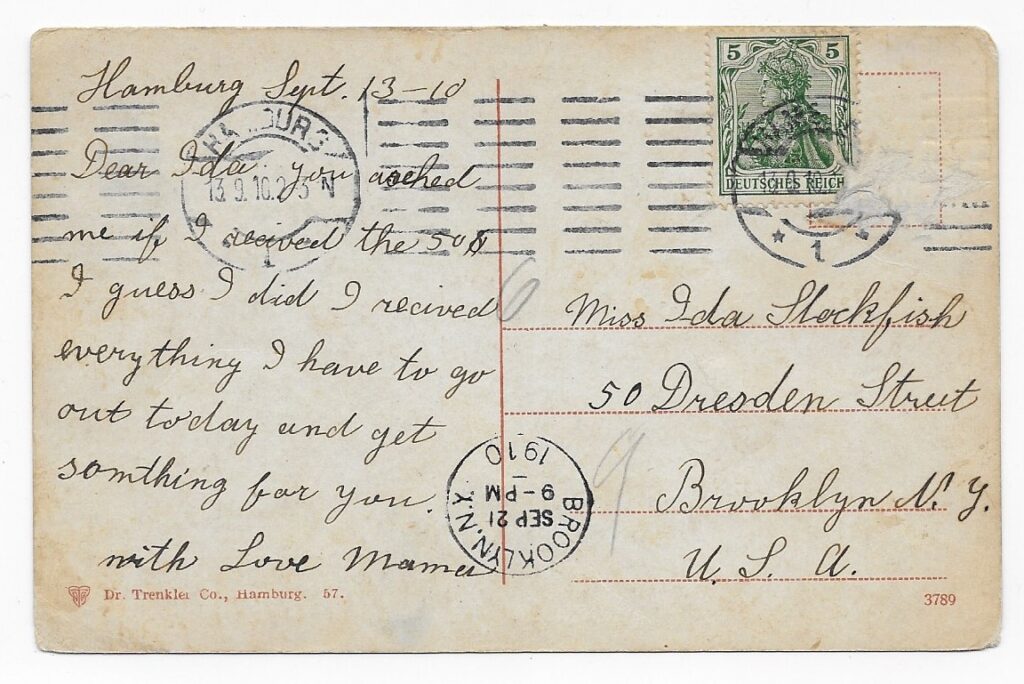 Hamburg Sept. 13-10
Dear Ida you asched
me if I recived the 50¢
I guess I did I recived
everything I have to go
out today and get
somthing for you.
with Love Mama
Dr. Trenkler Co., Hamburg. 57.
HAMBURG
13.9.10.2-3 N
1
5 5
DEUTSCHES REICH
13.9.10
1
Miss Ida Stockfish
50 Dresden Street
Brooklyn N.Y.
U. S. A.
3789
BROOKLYN, N.Y.
SEP 21
9-PM
1910
6
9